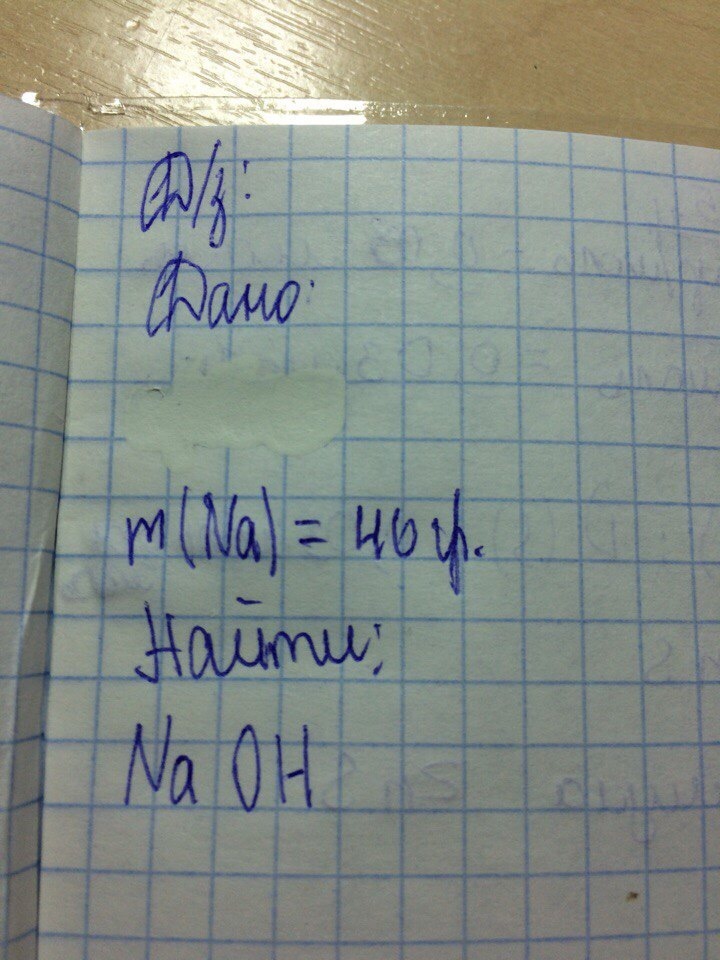 Д/з:
Дано:
m(Na) = 46 гр.
Найти:
Na OH